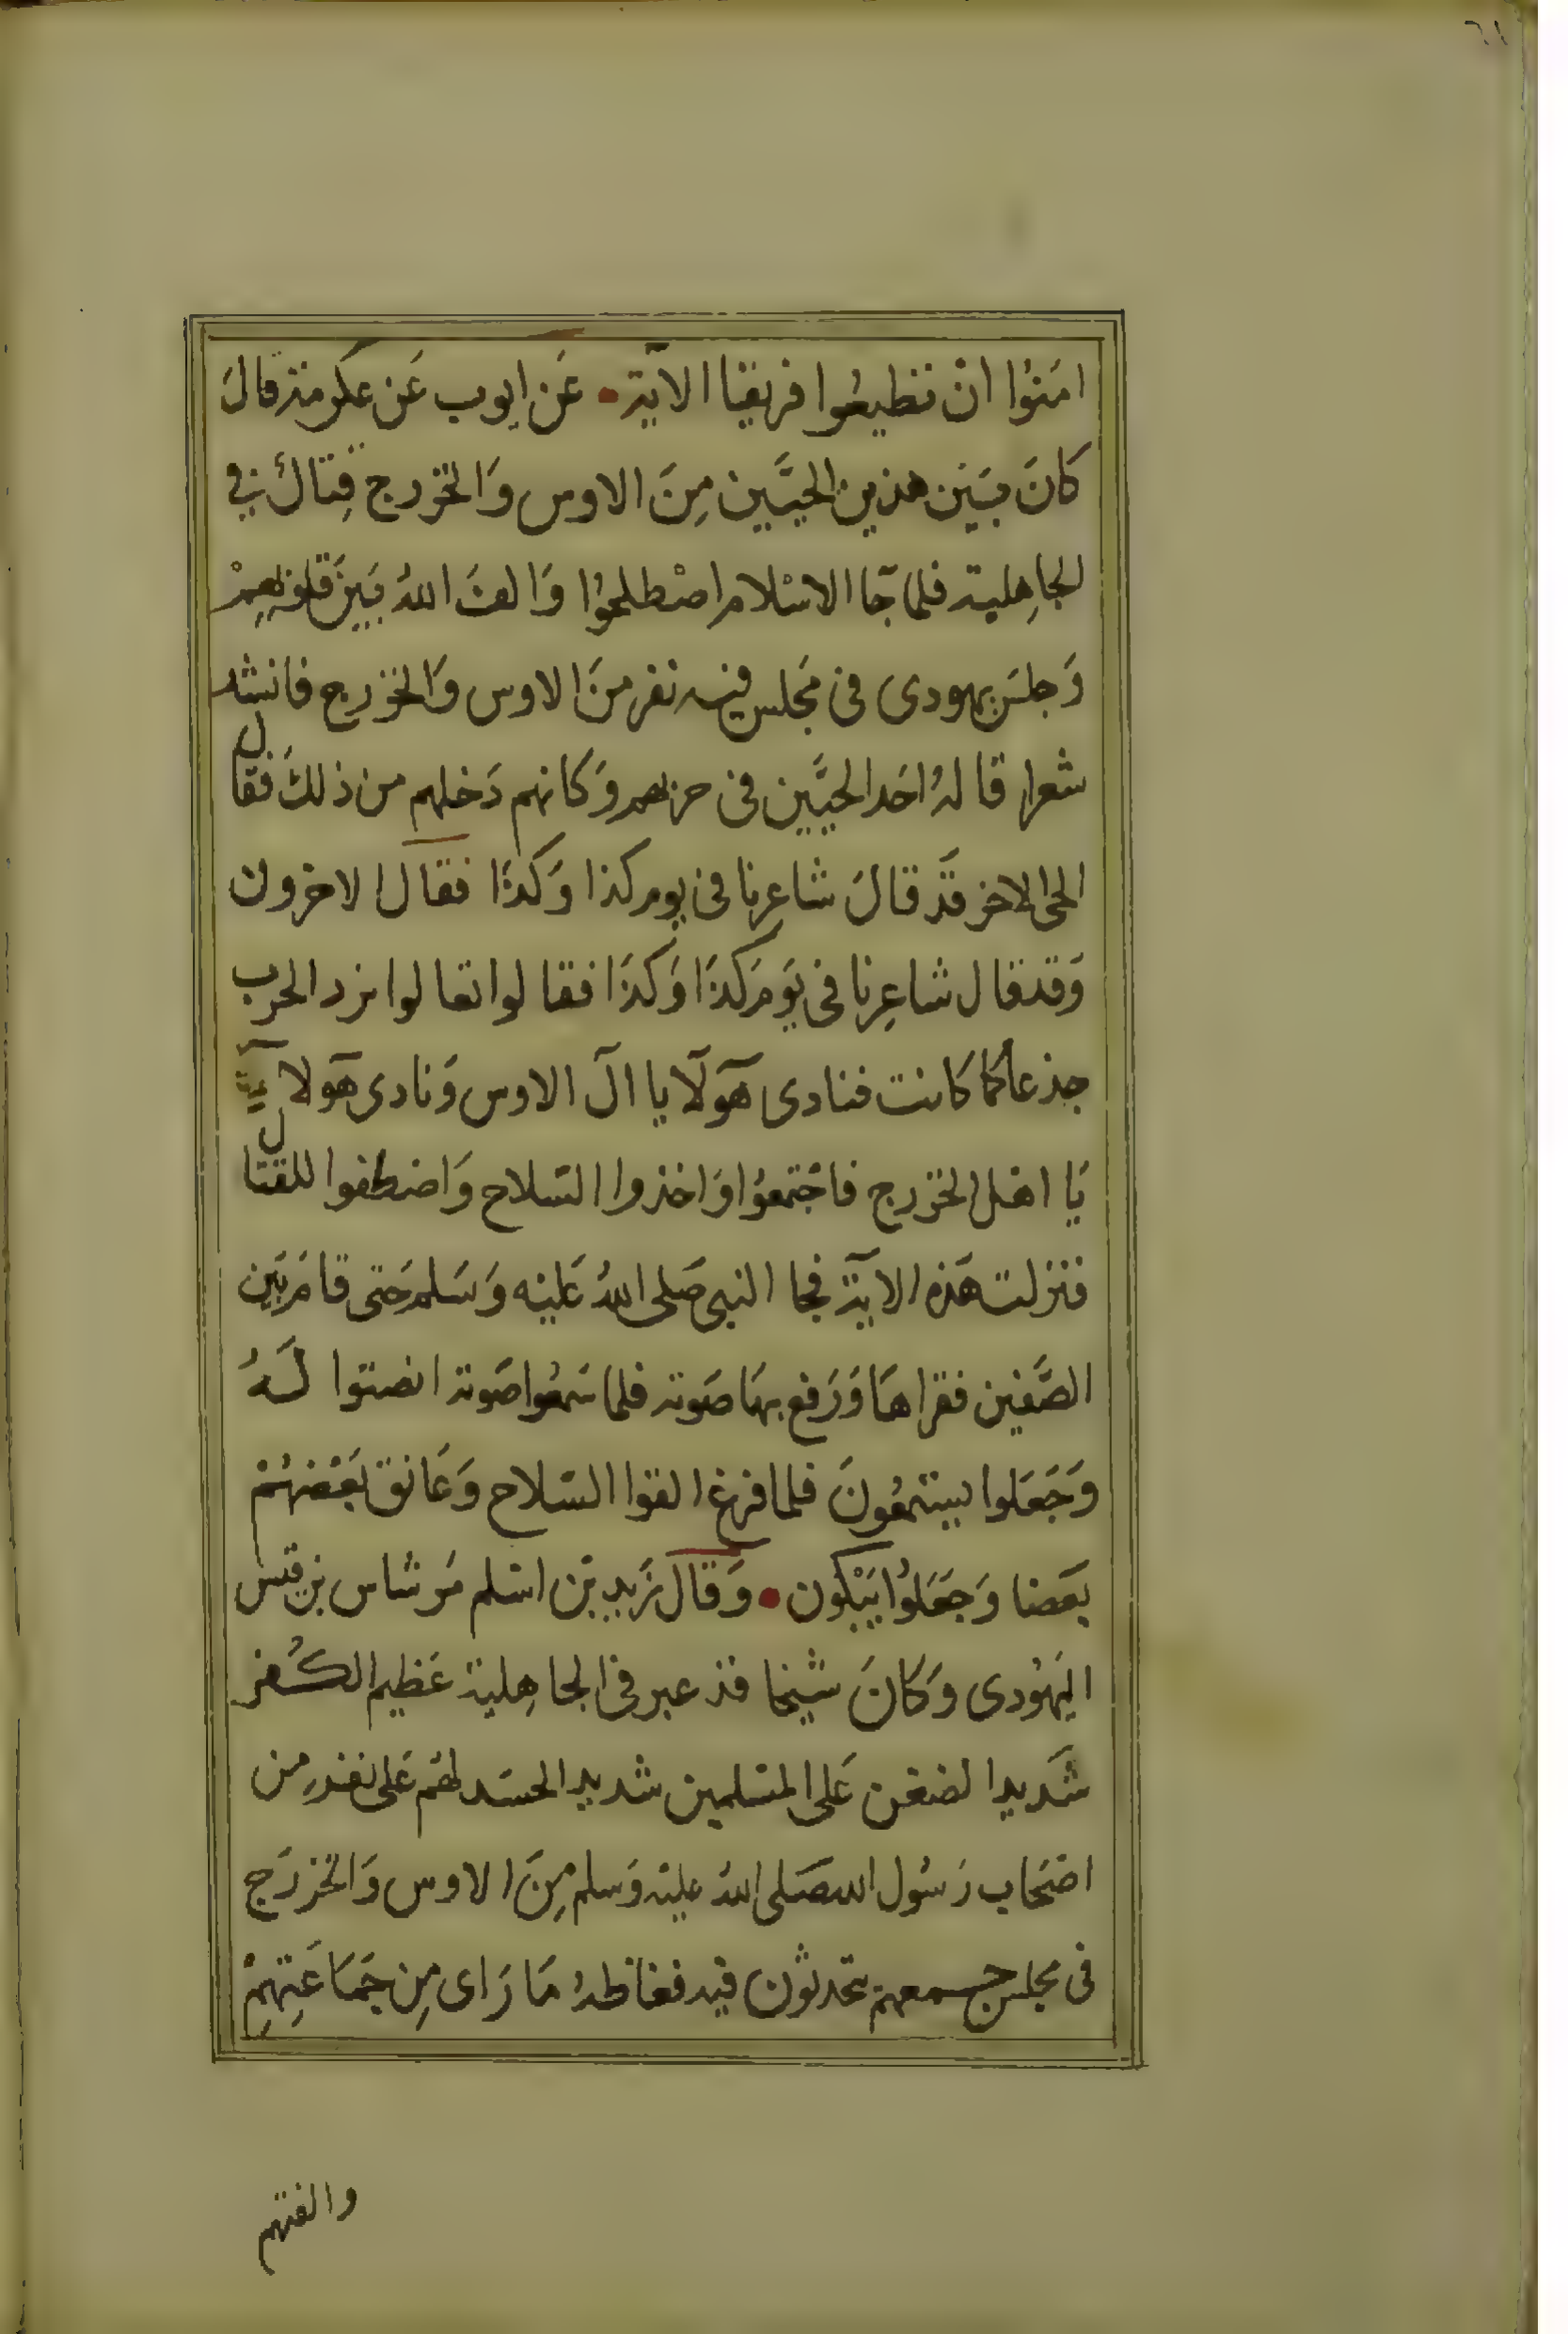 ٦١
امَنوُا انْ تطيعُوا فريقا الآية • عَن ايوب عَن عكرمة قالَ
كانَ بَيَن هذين الحيَّين مِنَ الاوس وَالخزرج قِتالٌ في
الجاهِلية فلما جآ الاسْلام اصْطلحوُا وَالفَ اللهُ بَيَن قلوبهِمْ
وَجلسَ يهودى فى مَجلس فيه نفر منَ الاوس وَالخزرج فانشد
شعرا قالهُ احَد الحيَّين فى حربهم وَكانهم دَخلهم من ذلكَ فقال
الحى الاخر قَد قالَ شاعرنا فى يوم كذا وَكذَا فقال الاخرون
وَقد قال شاعِرنا فى يَوم كذَا وَكذَا فقالوا تعالوا نرد الحرب
جذعا كما كانت فنادى هَؤلآ يا الَ الاوس وَنادى هَؤلآ
يَا اهل الخزرج فاجْتمعوُا وَاخذوا السّلاح وَاصْطفوا للقتال
فنزلت هَذه الآية فجا النبى صَلى اللهُ عَليْه وَسَلم حَتى قامَ بَيَن
الصَّفين فقراهَا وَرَفع بهَا صَوته فلما سَمعُوا صَوته انصتوا لَهُ
وَجَعَلوا يستمعُونَ فلما فرغ القوا السّلاح وَعَانق بَعْضهُمْ
بَعضا وَجَعَلوُا يَبْكون • وَقالَ زَيد بْن اسْلم مَر شاس بن قيس
اليَهوُدى وَكانَ شيْخا قد عبر فى الجاهِلية عَظيم الكُفر
شَديدا لضغن عَلى المسْلمين شديد الحسَد لهُم عَلى نفر مِن
اصْحَاب رَسُول الله صَلى اللهُ عليْه وَسلم مِنَ الاوس وَالخزرَج
فى مجلس جمعهمْ يتحدثون فيه فغاظهُ مَا رَاى مِن جَمَاعَتِهِمْ
والفتهم